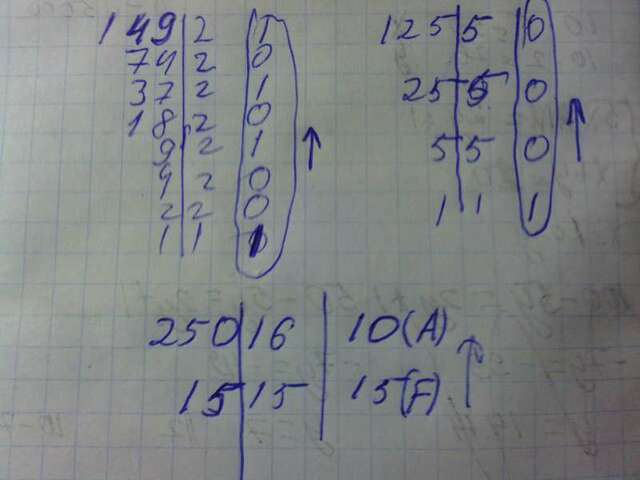 149 2 1
74 2 0
37 2 1
18 2 0
9 2 1
4 2 0
2 2 0
1 1 1
125 5 0
25 5 0
5 5 0
1 1 1
250 16 10(A)
15 15 15(F)